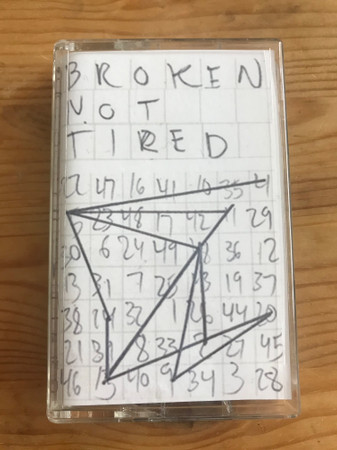 BROKEN
NOT
TIRED
22 47 16 41 10 35 4
23 48 17 42 29
30 6 24 49 18 36 12
13 31 7 25 19 37
38 14 32 1 26 44 20
21 39 8 33 2 27 45
46 15 40 9 34 3 28